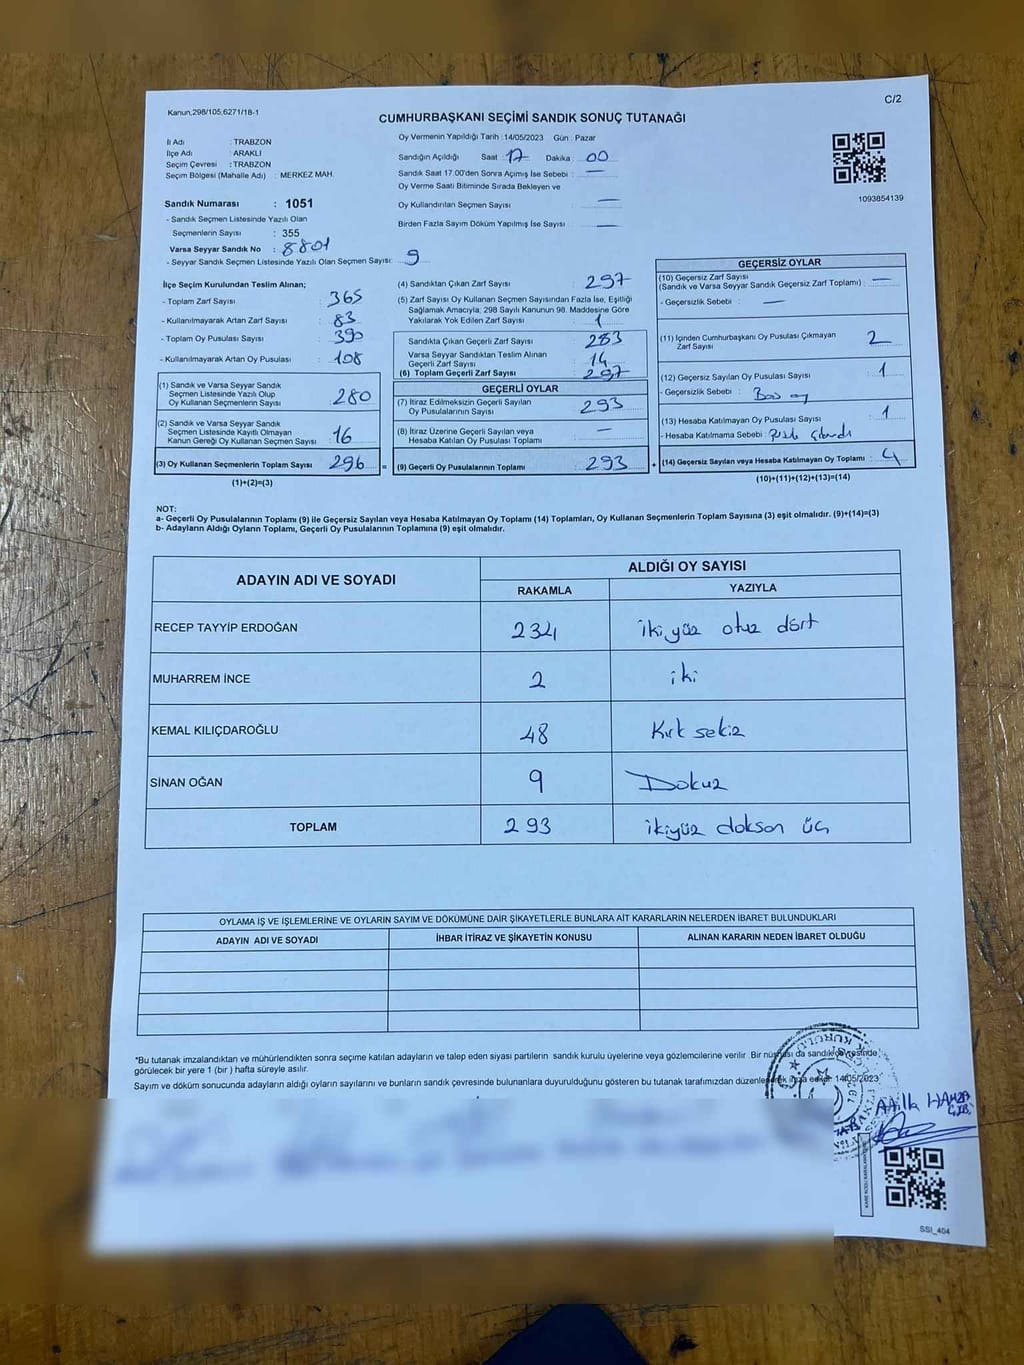 Kanun,298/105,6271/18-1
C/2
CUMHURBAŞKANI SEÇİMİ SANDIK SONUÇ TUTANAĞI
İl Adı : TRABZON
İlçe Adı : ARAKLI
Seçim Çevresi : TRABZON
Seçim Bölgesi (Mahalle Adı) : MERKEZ MAH.
Sandık Numarası : 1051
- Sandık Seçmen Listesinde Yazılı Olan
Seçmenlerin Sayısı : 355
Varsa Seyyar Sandık No : 8801
- Seyyar Sandık Seçmen Listesinde Yazılı Olan Seçmen Sayısı: 9
Oy Vermenin Yapıldığı Tarih : 14/05/2023 Gün : Pazar
Sandığın Açıldığı Saat 17 Dakika : 00
Sandık Saat 17.00'den Sonra Açımış İse Sebebi : —
Oy Verme Saati Bitiminde Sırada Bekleyen ve
Oy Kullandırılan Seçmen Sayısı : —
Birden Fazla Sayım Döküm Yapılmış İse Sayısı : —
1093854139
İlçe Seçim Kurulundan Teslim Alınan;
- Toplam Zarf Sayısı : 365
- Kullanılmayarak Artan Zarf Sayısı : 83
- Toplam Oy Pusulası Sayısı : 390
- Kullanılmayarak Artan Oy Pusulası : 108
(1) Sandık ve Varsa Seyyar Sandık
Seçmen Listesinde Yazılı Olup
Oy Kullanan Seçmenlerin Sayısı : 280
(2) Sandık ve Varsa Seyyar Sandık
Seçmen Listesinde Kayıtlı Olmayan
Kanun Gereği Oy Kullanan Seçmen Sayısı : 16
(3) Oy Kullanan Seçmenlerin Toplam Sayısı : 296 =
(1)+(2)=(3)
(4) Sandıktan Çıkan Zarf Sayısı : 297
(5) Zarf Sayısı Oy Kullanan Seçmen Sayısından Fazla İse, Eşitliği
Sağlamak Amacıyla; 298 Sayılı Kanunun 98. Maddesine Göre
Yakılarak Yok Edilen Zarf Sayısı : 1
Sandıkta Çıkan Geçerli Zarf Sayısı : 283
Varsa Seyyar Sandıktan Teslim Alınan
Geçerli Zarf Sayısı : 14
(6) Toplam Geçerli Zarf Sayısı : 297
GEÇERLİ OYLAR
(7) İtiraz Edilmeksizin Geçerli Sayılan
Oy Pusulalarının Sayısı : 293
(8) İtiraz Üzerine Geçerli Sayılan veya
Hesaba Katılan Oy Pusulası Toplamı : —
(9) Geçerli Oy Pusulalarının Toplamı : 293 +
GEÇERSİZ OYLAR
(10) Geçersiz Zarf Sayısı
(Sandık ve Varsa Seyyar Sandık Geçersiz Zarf Toplamı) : —
- Geçersizlik Sebebi : —
(11) İçinden Cumhurbaşkanı Oy Pusulası Çıkmayan
Zarf Sayısı : 2
(12) Geçersiz Sayılan Oy Pusulası Sayısı : 1
- Geçersizlik Sebebi : Boş oy
(13) Hesaba Katılmayan Oy Pusulası Sayısı : 1
- Hesaba Katılmama Sebebi :
(14) Geçersiz Sayılan veya Hesaba Katılmayan Oy Toplamı : 4
(10)+(11)+(12)+(13)=(14)
NOT:
a- Geçerli Oy Pusulalarının Toplamı (9) ile Geçersiz Sayılan veya Hesaba Katılmayan Oy Toplamı (14) Toplamları, Oy Kullanan Seçmenlerin Toplam Sayısına (3) eşit olmalıdır. (9)+(14)=(3)
b- Adayların Aldığı Oyların Toplamı, Geçerli Oy Pusulalarının Toplamına (9) eşit olmalıdır.
ADAYIN ADI VE SOYADI
ALDIĞI OY SAYISI
RAKAMLA YAZIYLA
RECEP TAYYİP ERDOĞAN 234 ikiyüz otuz dört
MUHARREM İNCE 2 iki
KEMAL KILIÇDAROĞLU 48 Kırk sekiz
SİNAN OĞAN 9 Dokuz
TOPLAM 293 ikiyüz dokson üç
OYLAMA İŞ VE İŞLEMLERİNE VE OYLARIN SAYIM VE DÖKÜMÜNE DAİR ŞİKAYETLERLE BUNLARA AİT KARARLARIN NELERDEN İBARET BULUNDUKLARI
ADAYIN ADI VE SOYADI İHBAR İTİRAZ VE ŞİKAYETİN KONUSU ALINAN KARARIN NEDEN İBARET OLDUĞU
*Bu tutanak imzalandıktan ve mühürlendikten sonra seçime katılan adayların ve talep eden siyasi partilerin sandık kurulu üyelerine veya gözlemcilerine verilir. Bir nüshası da sandık çevresinde
görülecek bir yere 1 (bir ) hafta süreyle asılır.
Sayım ve döküm sonucunda adayların aldığı oyların sayılarını ve bunların sandık çevresinde bulunanlara duyurulduğunu gösteren bu tutanak tarafımızdan düzenlenerek imza edildi. 14/05/2023
Atilla HAMZA
SSI_404